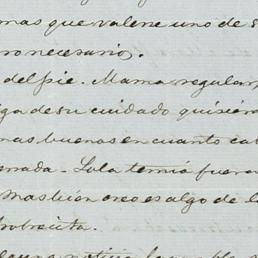 mas que valene uno de s
ro necesario.
del pie. Mama regular,
ga de su cuidado quisiera
mas buenas en cuanto ca
errada. Lola temió fuera
Mas bien creo es algo de l
pobrecita.